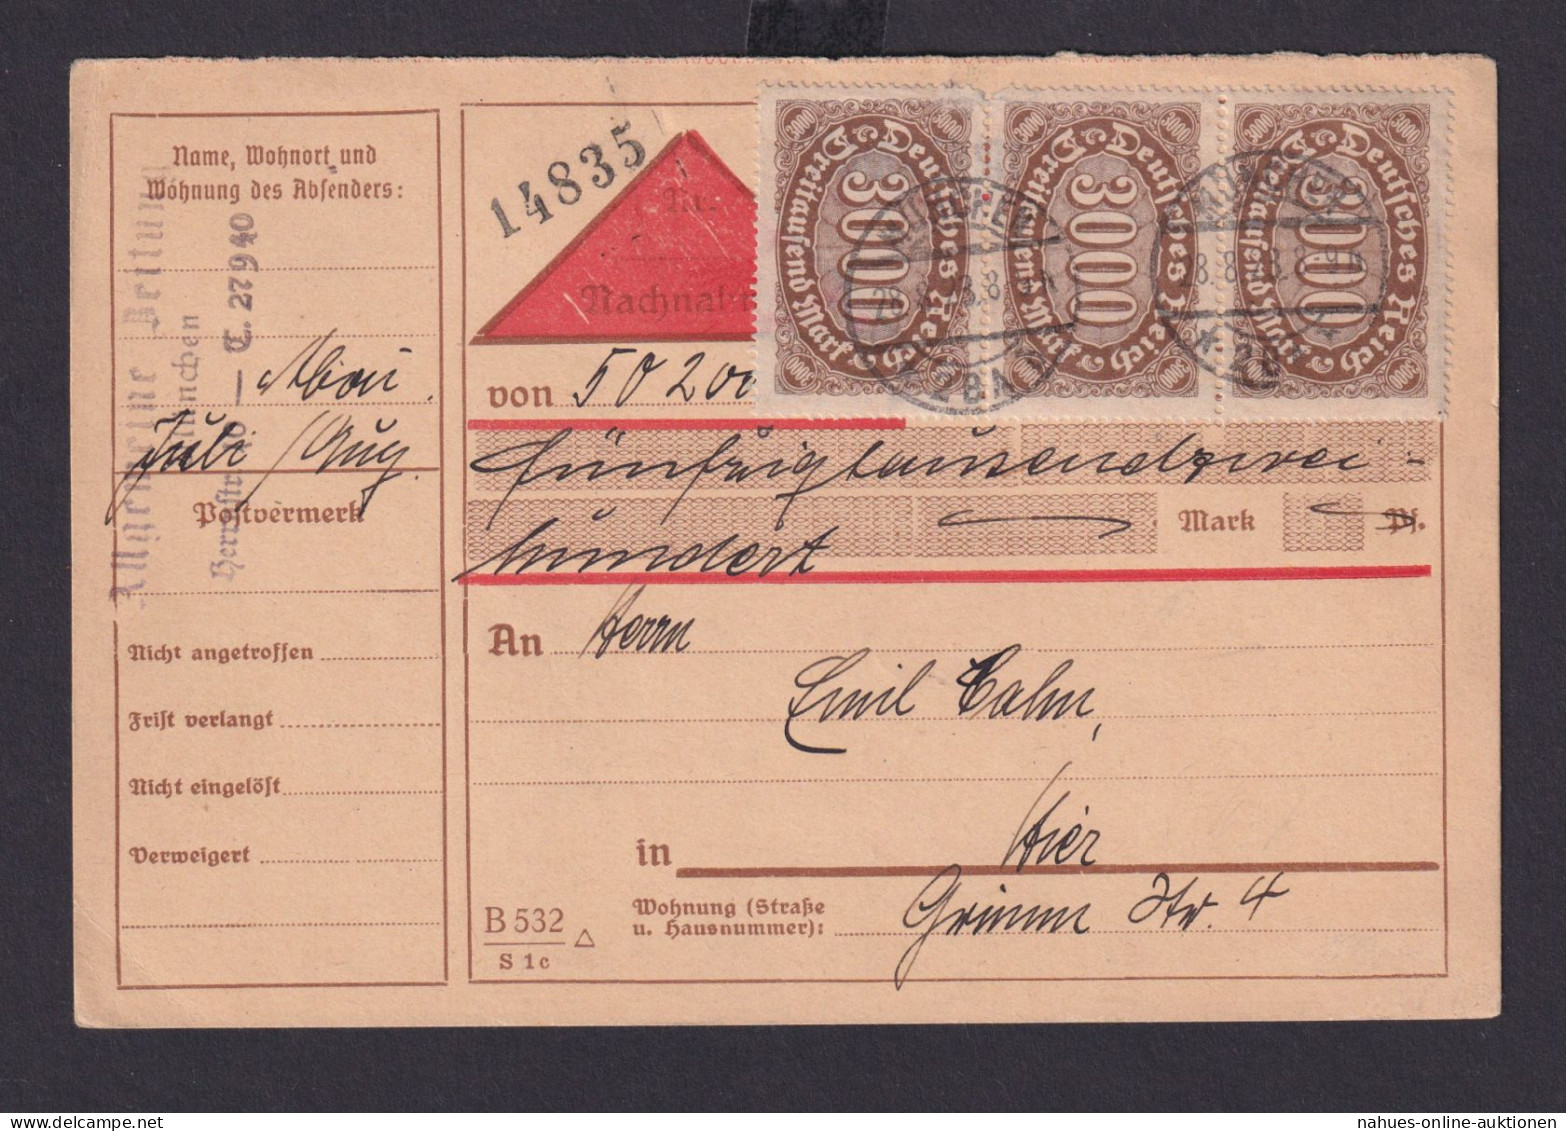 Name, Wohnort und
Wohnung des Absenders:
Allgemeine Zeitung
München
T. 27940
Abon.
Juli / Aug.
Postvermerk
Nicht angetroffen
Frist verlangt
Nicht eingelöst
Verweigert
14835
Nr.
Nachnahme
Deutsches Reich
3000
Dreitausend Mark
Deutsches Reich
3000
Dreitausend Mark
Deutsches Reich
3000
Dreitausend Mark
MÜNCHEN
MÜNCHEN
von 50 200
fünfzigtausendzwei-
hundert Mark Pf.
An Herrn
Emil Cahn,
in Hier
Wohnung (Straße
u. Hausnummer): Grimm Str. 4
B 532
S 1c
nahues-online-auktionen